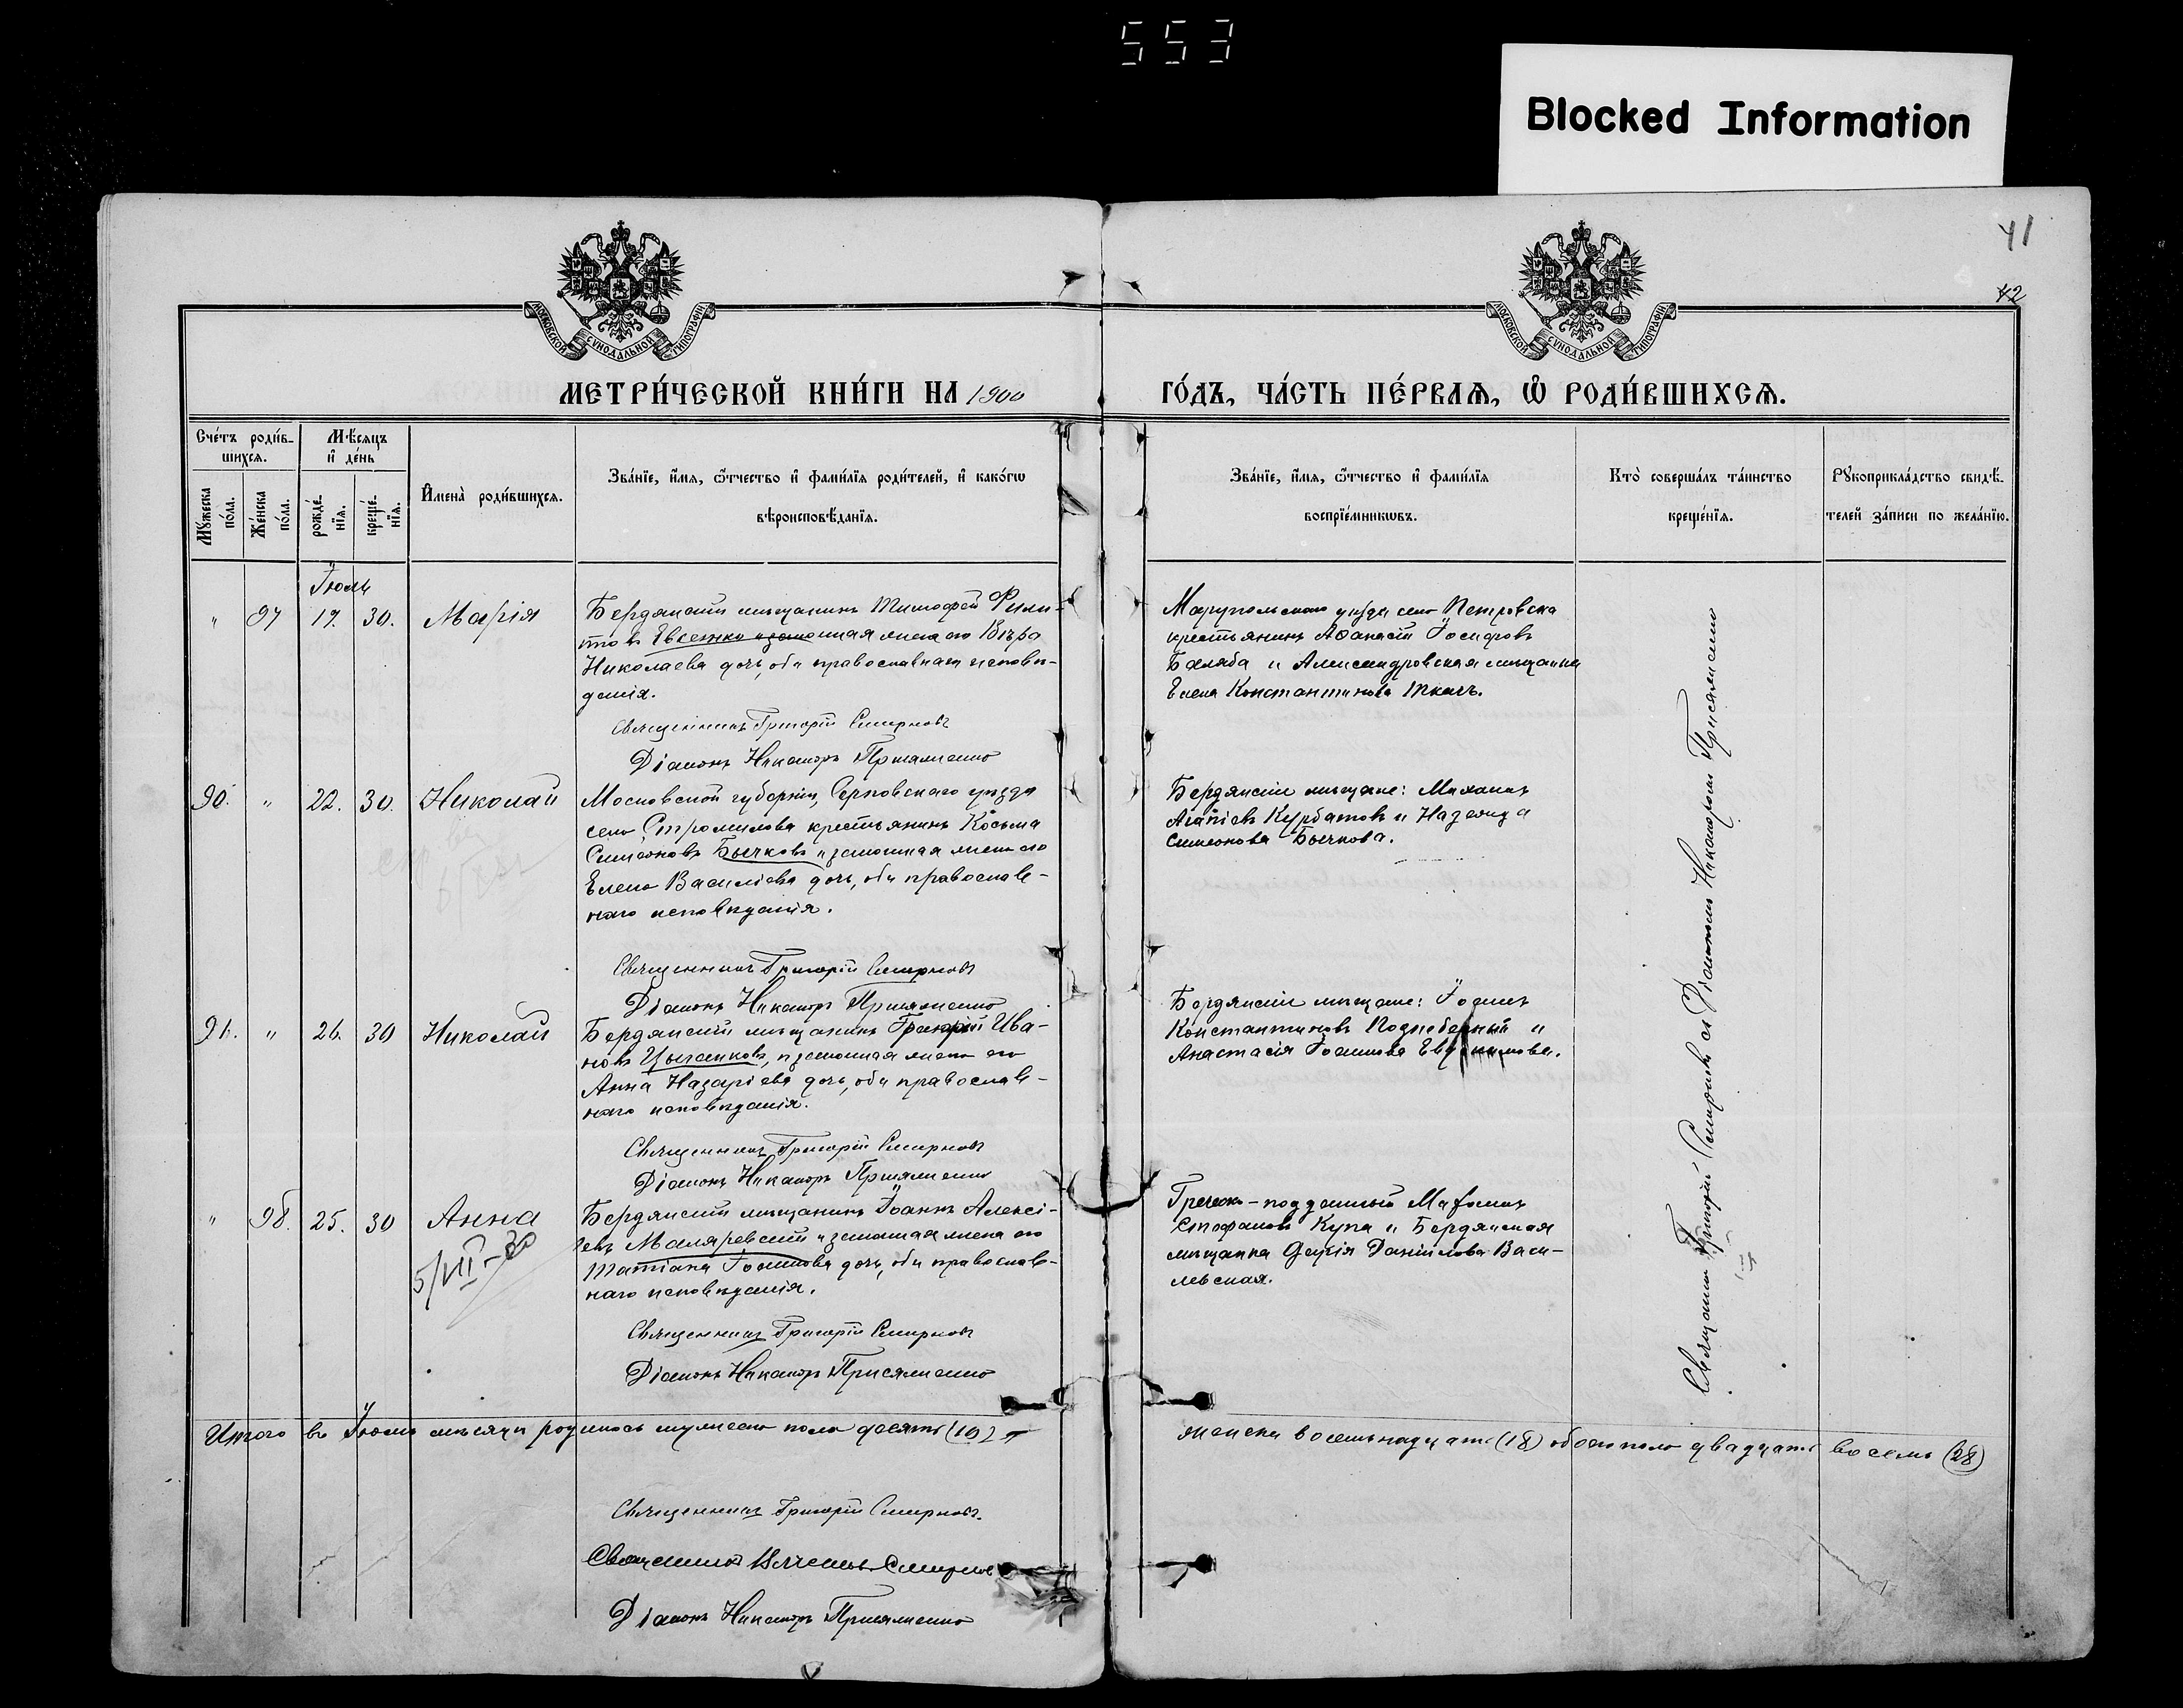 553
Blocked Information
41
42
МОСКОВСКОЙ СУНОДАЛЬНОЙ ТИПОГРАФІИ
МОСКОВСКОЙ СУНОДАЛЬНОЙ ТИПОГРАФІИ
МЕТРИ́ЧЕСКОЙ КНИ́ГИ НА 1900
ГО́ДЪ, ЧА́СТЬ ПЕ́РВАѦ, Ѡ҆ РОДИ́ВШИХСѦ.
Сче́тъ роди́в-
шихсѧ.
Мѣ́сѧцъ
и҆ де́нь
Мꙋ́жеска
по́ла.
Же́нска
по́ла.
рожде́-
нїѧ.
креще́-
нїѧ.
И҆мена̀ роди́вшихсѧ.
Зва́нїе, и҆́мѧ, ѻ҆́тчество и҆ фами́лїѧ роди́телей, и҆ како́гѡ
вѣроисповѣ́данїѧ.
Зва́нїе, и҆́мѧ, ѻ҆́тчество и҆ фами́лїѧ
воспрїе́мникѡвъ.
Кто̀ соверша́лъ та́инство
креще́нїѧ.
Рꙋкоприкла́дство свидѣ́-
телей за́писи по жела́нїю.
Іюль
" 97 19. 30. Марія
Бердянскій мѣщанинъ Тимофей Филип-
повъ Евсенко и законная жена его Вѣра
Николаева дочь, оба православнаго исповѣ-
данія.
Священникъ Григорій Смирновъ
Діаконъ Никаноръ Присяженко
Маріупольскаго уѣзда села Петровска
крестьянинъ Аѳанасій Іосифовъ
Баляба и Александровская мѣщанка
Елена Константинова Ткачъ.
90. " 22. 30. Николай
Московской губерніи, Серповскаго уѣзда
села Стромилова крестьянинъ Косьма
Симеоновъ Бычковъ и законная жена его
Елена Василіева дочь, оба православ-
наго исповѣданія.
Священникъ Григорій Смирновъ
Діаконъ Никаноръ Присяженко
Бердянскіе мѣщане: Михаилъ
Агапіевъ Курбатовъ и Надежда
Симеонова Бычкова.
91. " 26. 30 Николай
Бердянскій мѣщанинъ Григорій Ива-
новъ Цыганковъ, и законная жена его
Анна Назаріева дочь, оба православ-
наго исповѣданія.
Священникъ Григорій Смирновъ
Діаконъ Никаноръ Присяженко
Бердянскіе мѣщане: Іоаннъ
Константиновъ Поднеберный и
Анастасія Іоаннова
" 98. 25. 30 Анна
5/VII-30
Бердянскій мѣщанинъ Іоаннъ Алексі-
евъ Маляревскій и законная жена его
Татіана Іоаннова дочь, оба православ-
наго исповѣданія.
Священникъ Григорій Смирновъ
Діаконъ Никаноръ Присяженко
Греческо-подданный
Стефановъ Купа и Бердянская
мѣщанка Дарія Даніилова Васи-
левская.
Священникъ Григорій Смирновъ съ Діакономъ Никаноромъ Присяженко
Итого въ Іюлѣ мѣсяцѣ родилось мужеска пола десять (10)
женска восемьнадцать (18) обоего пола двадцать восемь (28)
Священникъ Григорій Смирновъ.
Священникъ Смирновъ
Діаконъ Никаноръ Присяженко